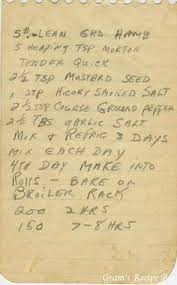 5# LEAN GRD HAMB
5 HEAPING TSP MORTON
TENDER QUICK
2½ TSP MUSTARD SEED
1 TSP HICORY SMOKED SALT
2½ TSP COURSE GROUND PEPPER
2½ TBS GARLIC SALT
MIX & REFRIG 3 DAYS
MIX EACH DAY
4TH DAY MAKE INTO
ROLLS - BAKE ON
BROILER RACK
200 2 HRS
150 7-8 HRS
Gram's Recipe Box